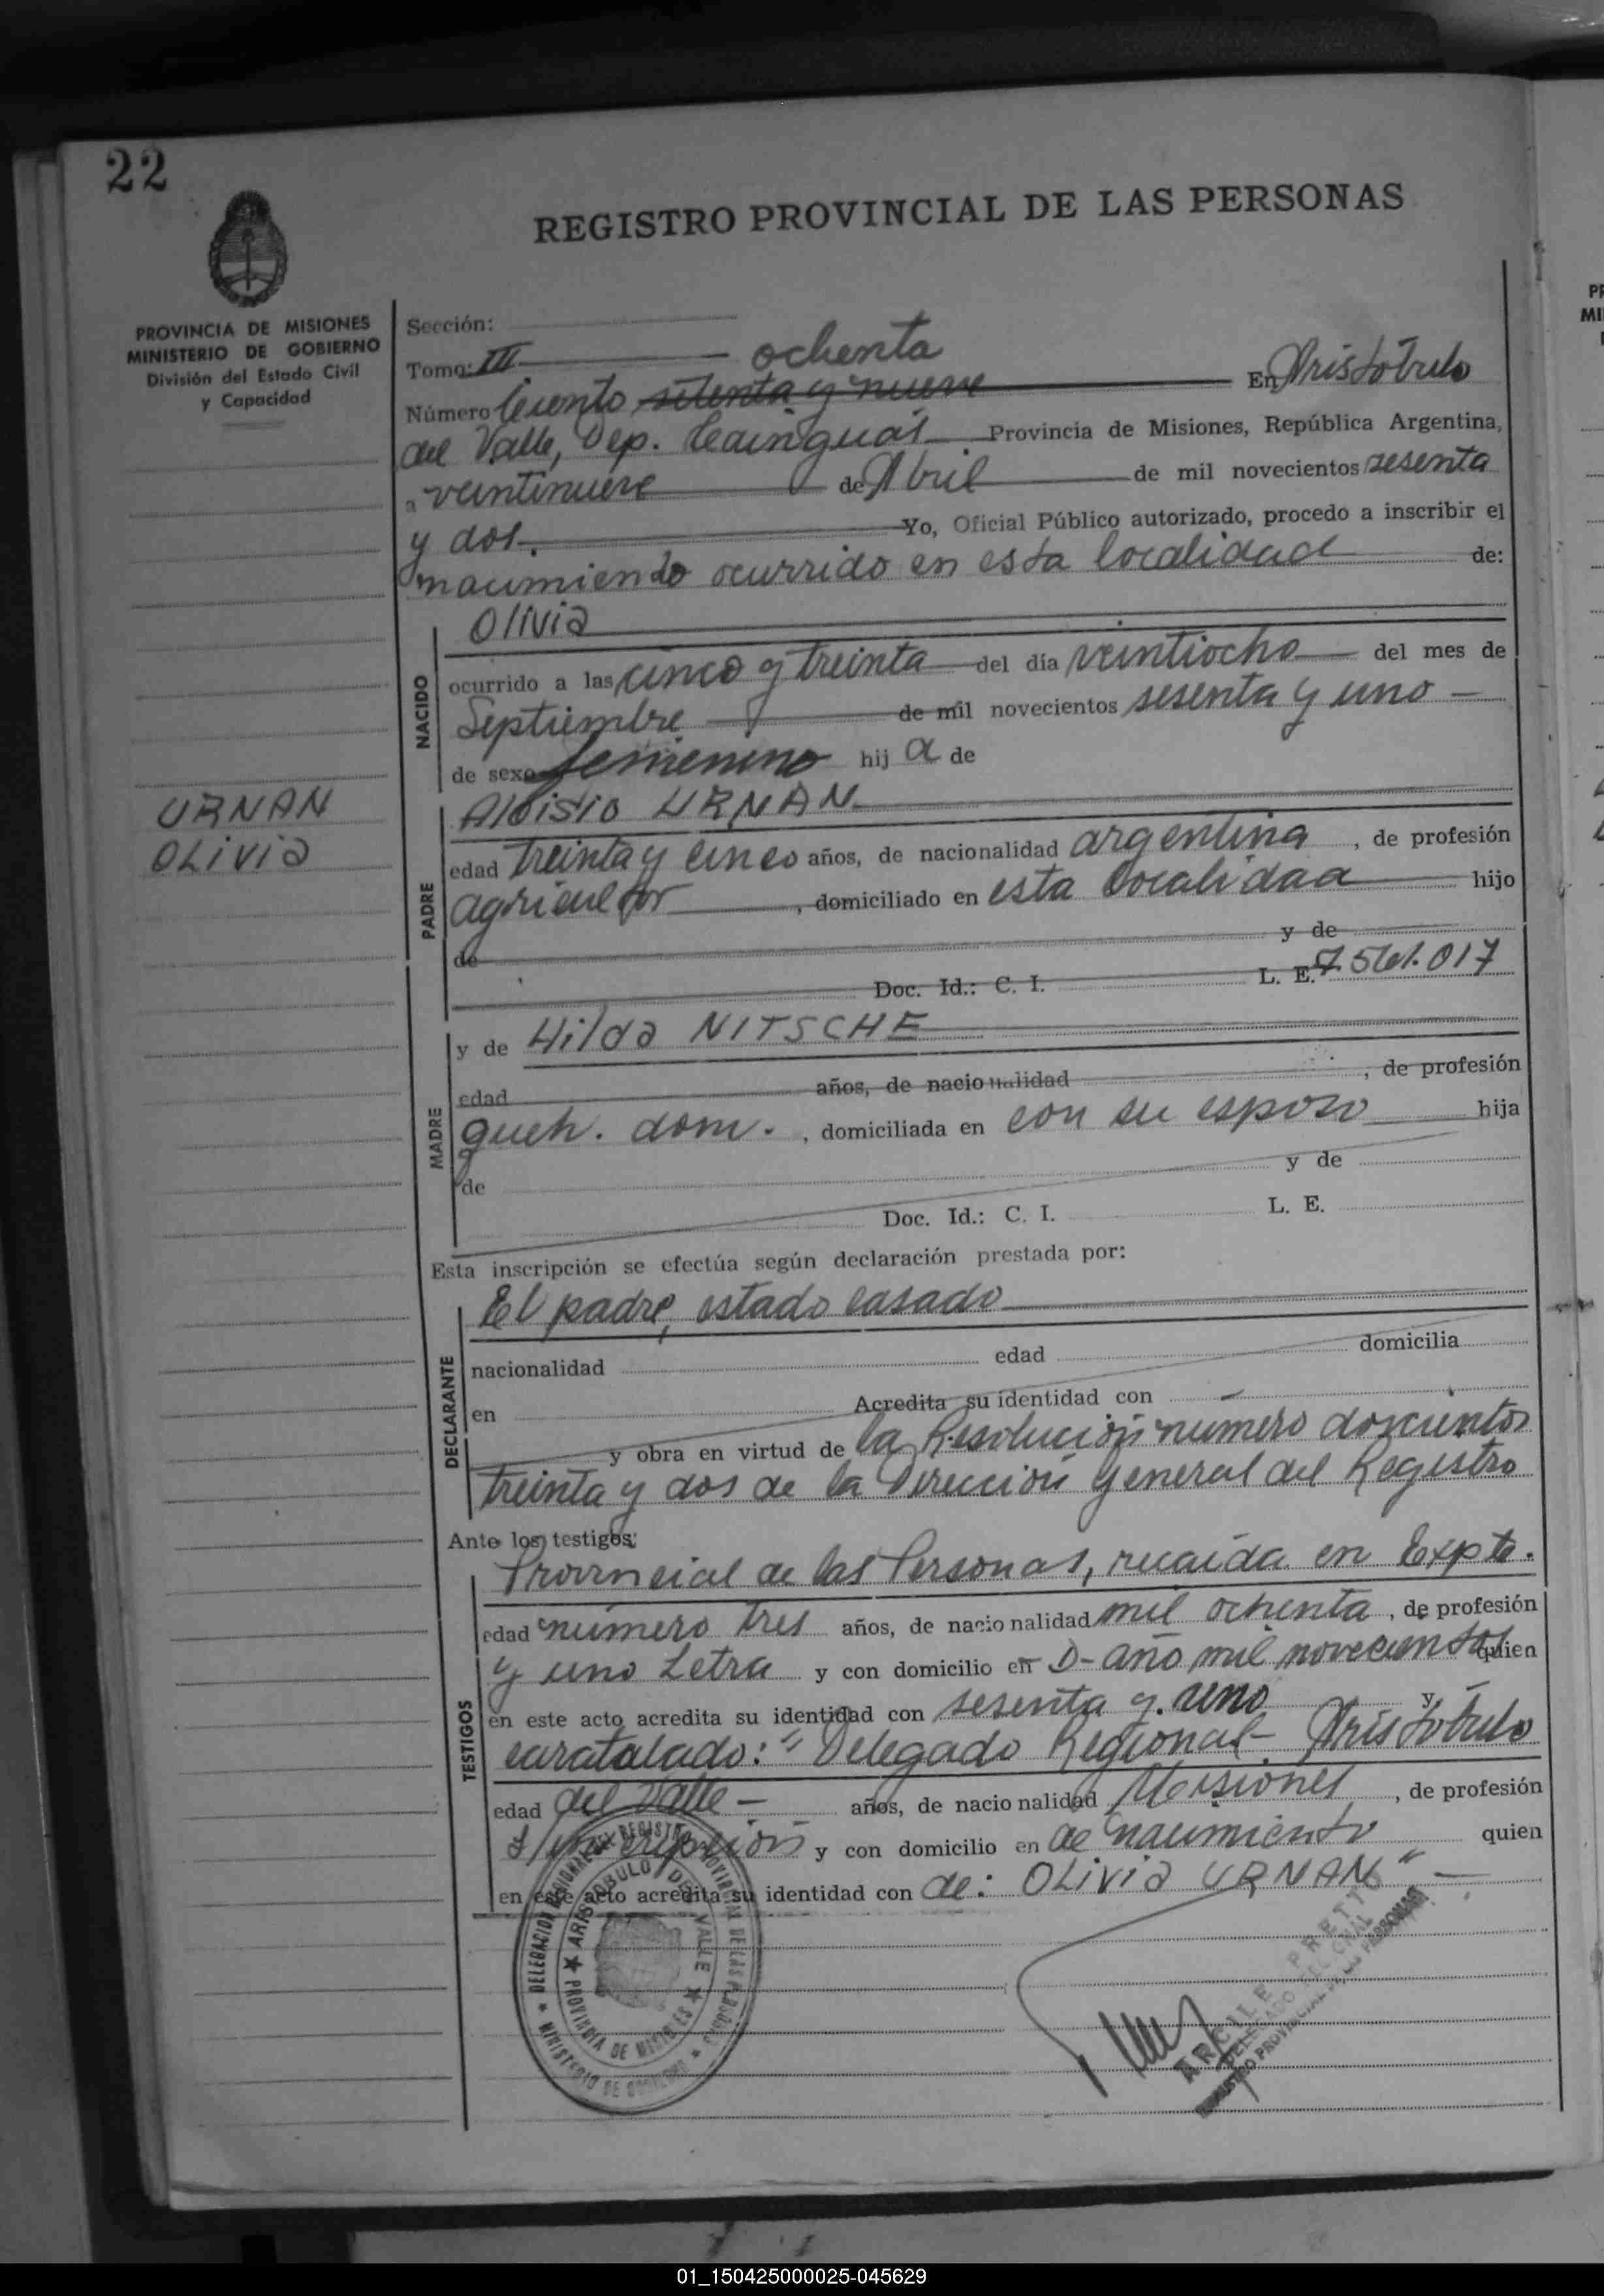 22
REGISTRO PROVINCIAL DE LAS PERSONAS
PROVINCIA DE MISIONES
MINISTERIO DE GOBIERNO
División del Estado Civil
y Capacidad
Sección:
Tomo: III ochenta
Número Ciento setenta y nueve En Aristóbulo
del Valle, Dep. Cainguás Provincia de Misiones, República Argentina,
a veintinueve de Abril de mil novecientos sesenta
y dos. Yo, Oficial Público autorizado, procedo a inscribir el
nacimiendo ocurrido en esta localidad de:
Olivia
NACIDO
ocurrido a las cinco y treinta del día veintiocho del mes de
Septiembre de mil novecientos sesenta y uno
de sexo femenino hij a de
URNAN
OLiVia
PADRE
Aloisio URNAN
edad treinta y cinco años, de nacionalidad argentina, de profesión
agricultor, domiciliado en esta localidad hijo
de y de
Doc. Id.: C. I. L. E. 7.561.017
MADRE
y de Hilda NITSCHE
edad años, de nacionalidad, de profesión
queh. dom., domiciliada en con su esposo hija
de y de
Doc. Id.: C. I. L. E.
Esta inscripción se efectúa según declaración prestada por:
DECLARANTE
El padre, estado casado
nacionalidad edad domicilia
en Acredita su identidad con
y obra en virtud de la Resolución número doscientos
treinta y dos de la Dirección General del Registro
Ante los testigos:
TESTIGOS
Provincial de las Personas, recaída en Expte.
edad número tres años, de nacionalidad mil ochenta, de profesión
y uno Letra y con domicilio en D- año mil novecientos quien
en este acto acredita su identidad con sesenta y uno y
caratalado: "Delegado Regional Aristóbulo
edad del Valle - años, de nacionalidad Misiones, de profesión
s/inscripción y con domicilio en de nacimiento quien
en este acto acredita su identidad con de: OLiVia URNAN" -
DELEGACION REGIONAL DEL REGISTRO PROVINCIAL DE LAS PERSONAS
MINISTERIO DE GOBIERNO
ARISTOBULO DEL VALLE
PROVINCIA DE MISIONES
PRETTO
DELEGADO REGIONAL
REGISTRO PROVINCIAL DE LAS PERSONAS
01_150425000025-045629